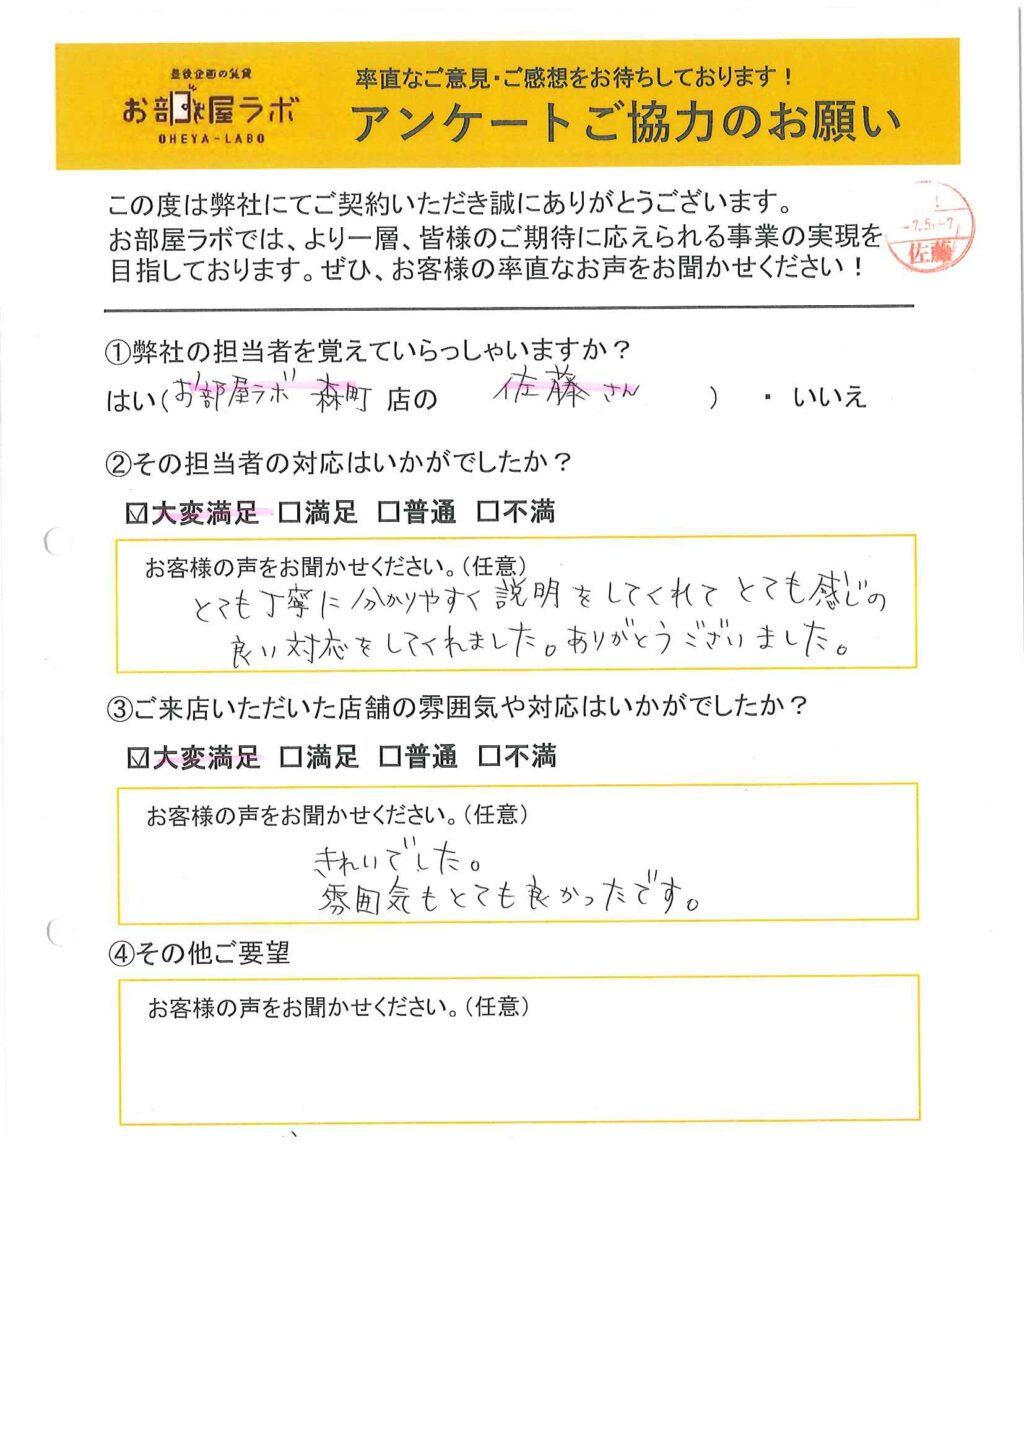 豊後企画の賃貸
お部屋ラボ
OHEYA-LABO
率直なご意見・ご感想をお待ちしております！
アンケートご協力のお願い
この度は弊社にてご契約いただき誠にありがとうございます。
お部屋ラボでは、より一層、皆様のご期待に応えられる事業の実現を
目指しております。ぜひ、お客様の率直なお声をお聞かせください！
-7.5.-7
佐藤
①弊社の担当者を覚えていらっしゃいますか？
はい（お部屋ラボ 森町 店の 佐藤さん ） ・ いいえ
②その担当者の対応はいかがでしたか？
☑大変満足 □満足 □普通 □不満
お客様の声をお聞かせください。（任意）
とても丁寧に分かりやすく説明をしてくれてとても感じの
良い対応をしてくれました。ありがとうございました。
③ご来店いただいた店舗の雰囲気や対応はいかがでしたか？
☑大変満足 □満足 □普通 □不満
お客様の声をお聞かせください。（任意）
きれいでした。
雰囲気もとても良かったです。
④その他ご要望
お客様の声をお聞かせください。（任意）